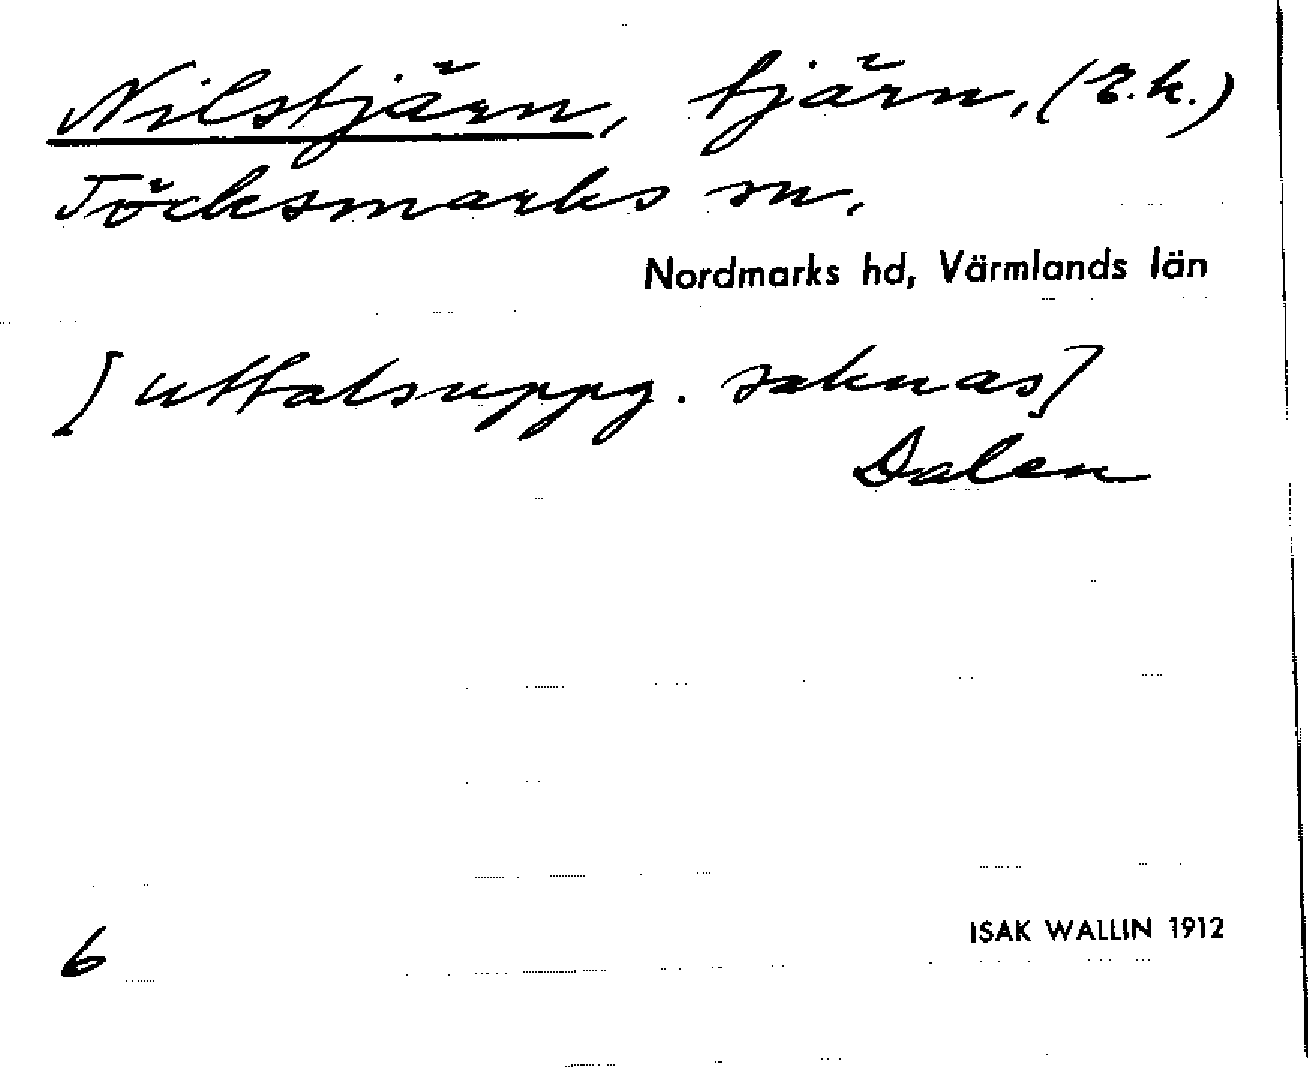 Nilstjärn, tjärn, (E.k.)
Töcksmarks sn.
Nordmarks hd, Värmlands län
[uttalsuppg. saknas]
Dalen
6
ISAK WALLIN 1912